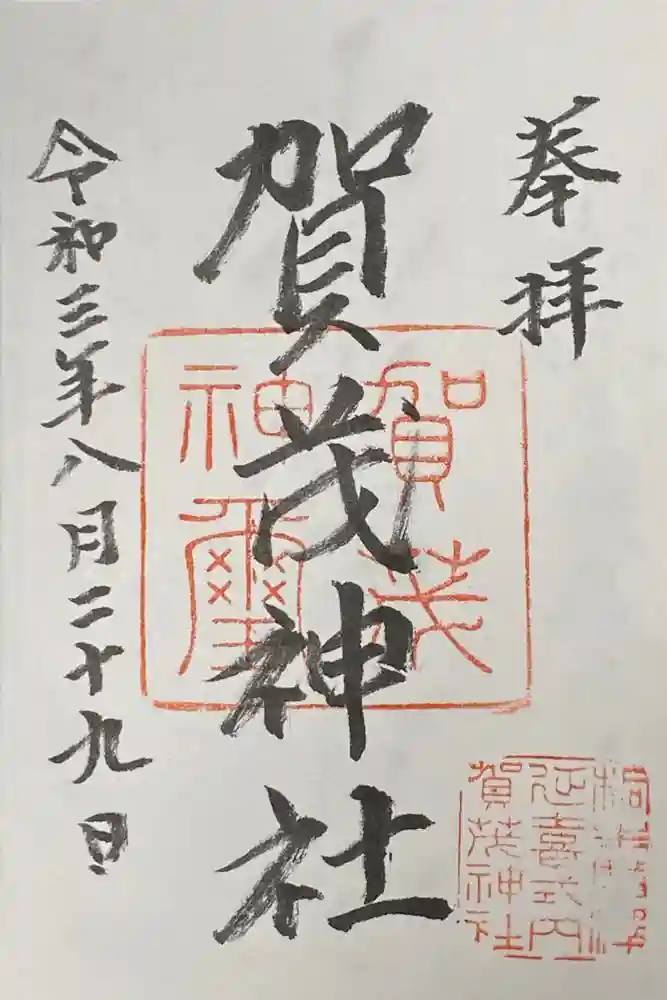 奉拝
賀茂神社
令和三年八月二十九日
賀茂
神璽
延喜式内
賀茂神社